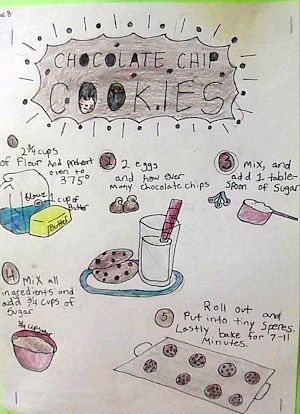 CHOCOLATE CHIP
COOKIES
1
2 3/4 cups
of Flour And preheat
oven to
375°
flour
1 cup of
Butter
Butter
2
2 eggs
and how ever
many chocolate chips
3
Mix, and
add 1 table-
spoon of Sugar
4
Mix all
ingredients and
add 3/4 cups of
Sugar
3/4 cups
5
Roll out and
Put into tiny Speres
Lastly bake for 7-11
Minutes.